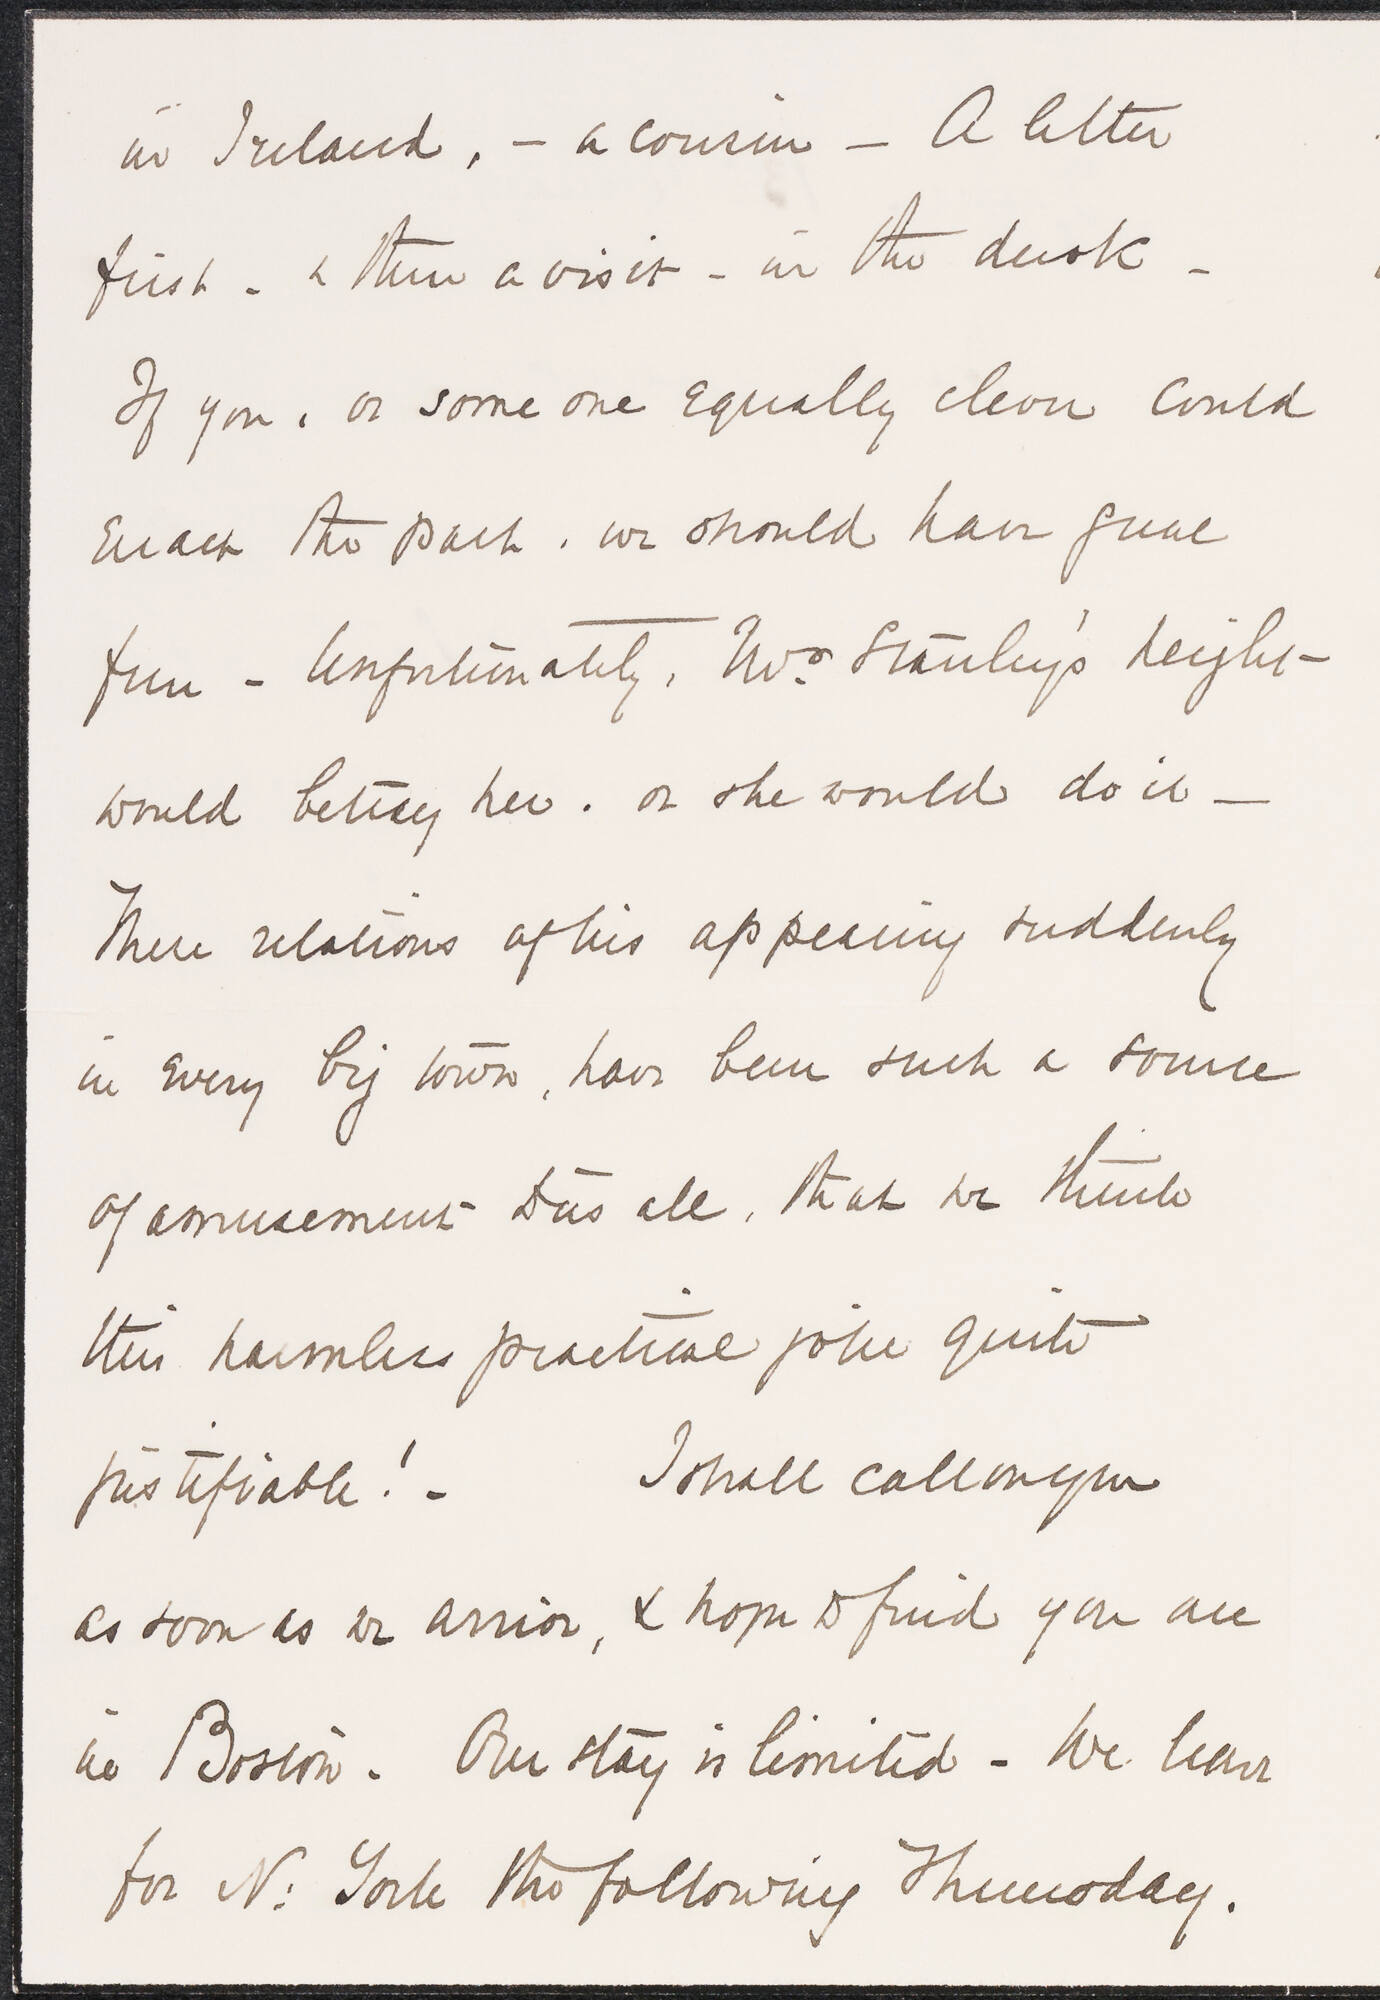 in Ireland, - a cousin - A letter
first - & then a visit - in the dusk -
If you, or some one equally clever could
enact the part, we should have great
fun - Unfortunately, Mrs Stanley's height
would betray her, or she would do it -
These relations of his appearing suddenly
in every big town, have been such a source
of amusement to us all, that we think
this harmless practical joke quite
justifiable! - I shall call on you
as soon as we arrive, & hope to find you are
in Boston. Our stay is limited - We leave
for N: York the following Thursday.